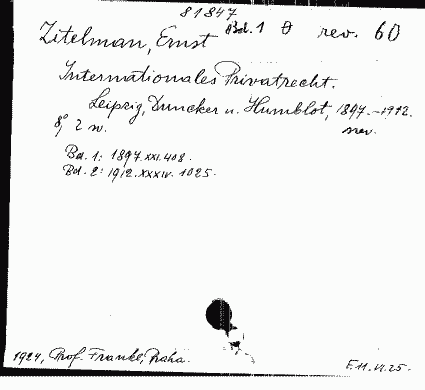 81847
Zitelman, Ernst Bd. 1 rev. 60
Internationales Privatrecht.
Leipzig, Duncker u. Humblot, 1897.-1912.
8° 2 w. rev.
Bd. 1: 1897.XXI.408.
Bd. 2: 1912.XXXIV.1025.
1924, Prof. Frankl, Praha. F.11.VI.25.